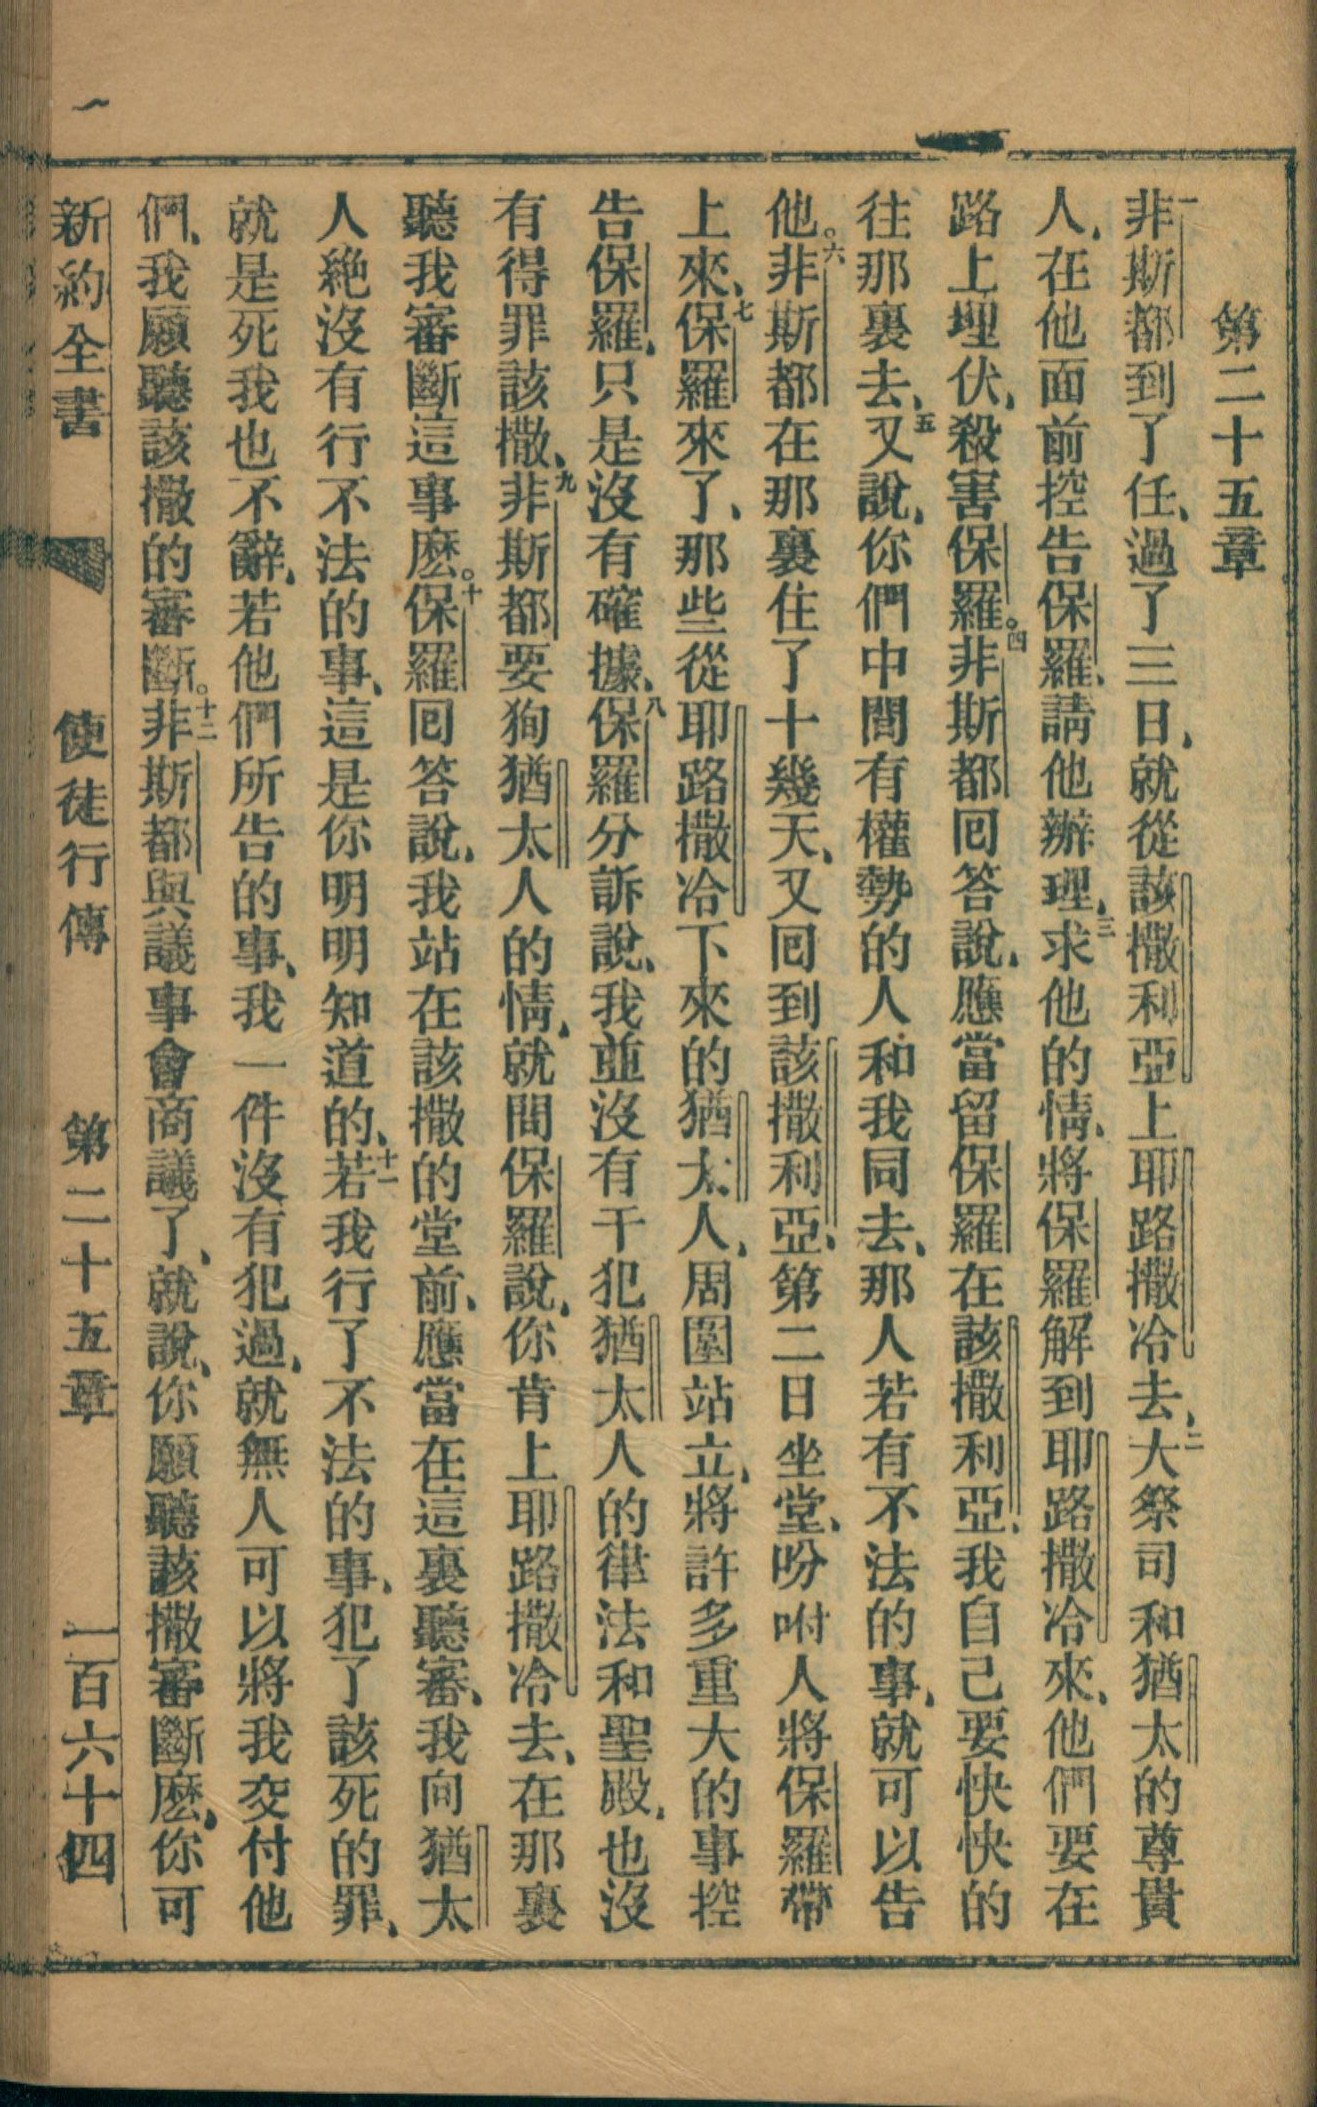 第二十五章
一非斯都到了任、過了三日、就從該撒利亞上耶路撒冷去、二大祭司和猶太的尊貴
人、在他面前控告保羅、請他辦理、三求他的情、將保羅解到耶路撒冷來、他們要在
路上埋伏、殺害保羅。四非斯都回答說、應當留保羅在該撒利亞、我自己要快快的
往那裏去、五又說、你們中間有權勢的人和我同去、那人若有不法的事、就可以告
他。六非斯都在那裏住了十幾天、又回到該撒利亞、第二日坐堂、吩咐人將保羅帶
上來、七保羅來了、那些從耶路撒冷下來的猶太人、周圍站立、將許多重大的事控
告保羅、只是沒有確據、八保羅分訴說、我並沒有干犯猶太人的律法和聖殿、也沒
有得罪該撒、九非斯都要狥猶太人的情、就問保羅說、你肯上耶路撒冷去、在那裏
聽我審斷這事麽。十保羅回答說、我站在該撒的堂前、應當在這裏聽審、我向猶太
人絕沒有行不法的事、這是你明明知道的、十一若我行了不法的事、犯了該死的罪、
就是死我也不辭、若他們所告的事、我一件沒有犯過、就無人可以將我交付他
們、我願聽該撒的審斷。十二非斯都與議事會商議了、就說、你願聽該撒審斷麽、你可
新約全書 使徒行傳 第二十五章 一百六十四